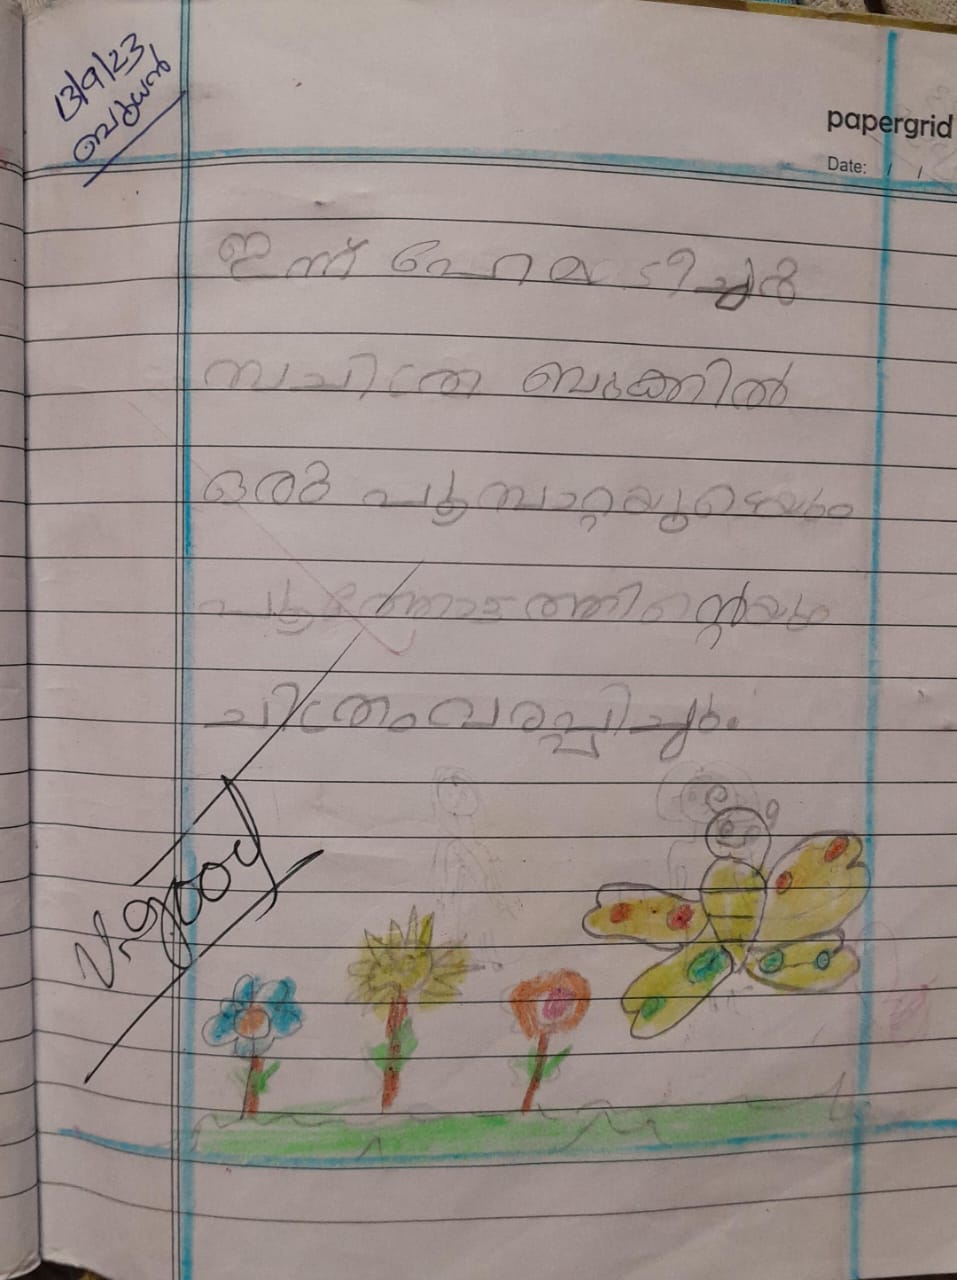 13/9/23
ബുധൻ
papergrid
Date: / /
ഇന്ന് ഹേമ ടീച്ചർ
സചിത്ര ബുക്കിൽ
ഒരു പൂമ്പാറ്റയുടെയും
പൂന്തോട്ടത്തിന്റെയും
ചിത്രം വരപ്പിച്ചു.
V.good